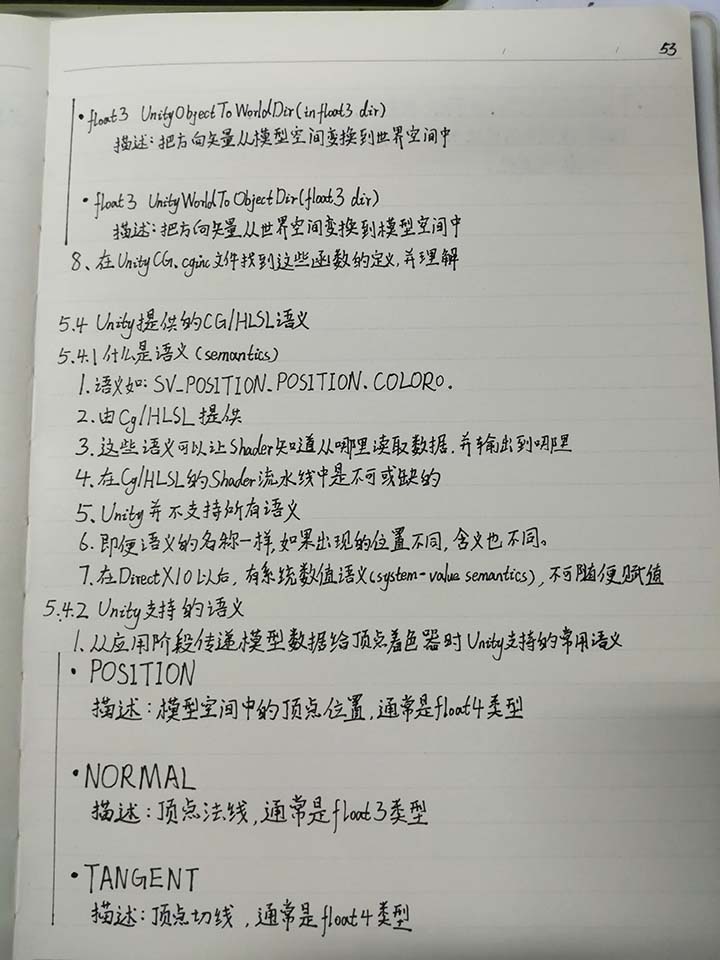 53
• float3 UnityObjectToWorldDir(in float3 dir)
描述:把方向矢量从模型空间变换到世界空间中
• float3 UnityWorldToObjectDir(float3 dir)
描述:把方向矢量从世界空间变换到模型空间中
8、在UnityCG.cginc文件找到这些函数的定义,并理解
5.4 Unity提供的CG/HLSL语义
5.4.1 什么是语义(semantics)
1.语义如:SV_POSITION、POSITION、COLOR0.
2.由Cg/HLSL提供
3.这些语义可以让Shader知道从哪里读取数据,并输出到哪里
4.在Cg/HLSL的Shader流水线中是不可或缺的
5、Unity并不支持所有语义
6.即便语义的名称一样,如果出现的位置不同,含义也不同。
7.在DirectX10以后,有系统数值语义(system-value semantics),不可随便赋值
5.4.2 Unity支持的语义
1.从应用阶段传递模型数据给顶点着色器时Unity支持的常用语义
• POSITION
描述:模型空间中的顶点位置,通常是float4类型
• NORMAL
描述:顶点法线,通常是float3类型
• TANGENT
描述:顶点切线,通常是float4类型